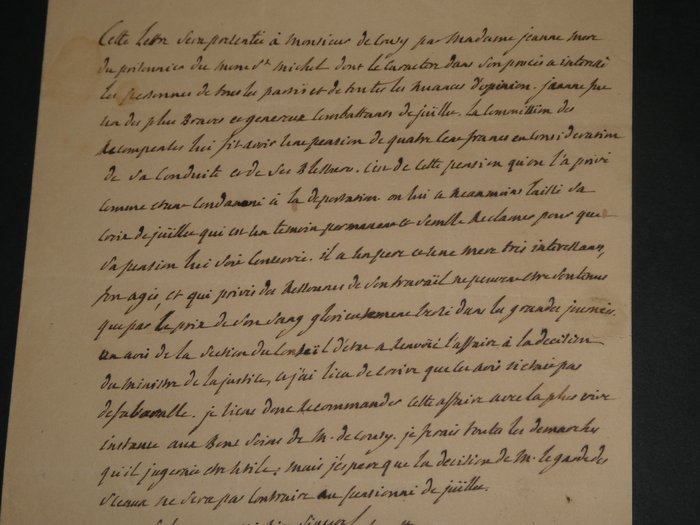 Cette lettre sera presentée à Monsieur de Cousy par Madame jeanne mere
du prisonnier du mont St michel dont le Caractere dans son procès a interessé
les personnes de tous les partis et de toutes les nuances d'opinion. jeanne fut
un des plus Braves et genereux Combattans de juillet. la Commission des
Recompenses lui fit avoir une pension de quatre Cent francs en Consideration
de sa Conduite et de ses Blessures. C'est de cette pension qu'on l'a privé
comme etant Condamné à la deportation on lui a neanmoins laissé sa
croix de juillet qui est un temoin permanent et semble Reclamer pour que
sa pension lui soit Conservée. il a un pere et une mere très interessans,
fort agés, et qui privés des Ressources de son travail ne peuvent etre soutenus
que par le prix de son sang glorieusement versé dans la grande journée.
un avis de la Section du Conseil d'etat a Renvoié l'affaire à la decision
du Ministre de la justice, et j'ai lieu de croire que cet avis n'etait pas
defavorable. je viens donc Recommander cette affaire avec la plus vive
instance aux Bons soins de M. de Cousy. je ferais toutes les demarches
qu'il jugerait etre utile; mais j'espere que la decision de M. le garde des
sceaux ne sera pas Contraire au pensionné de juillet.